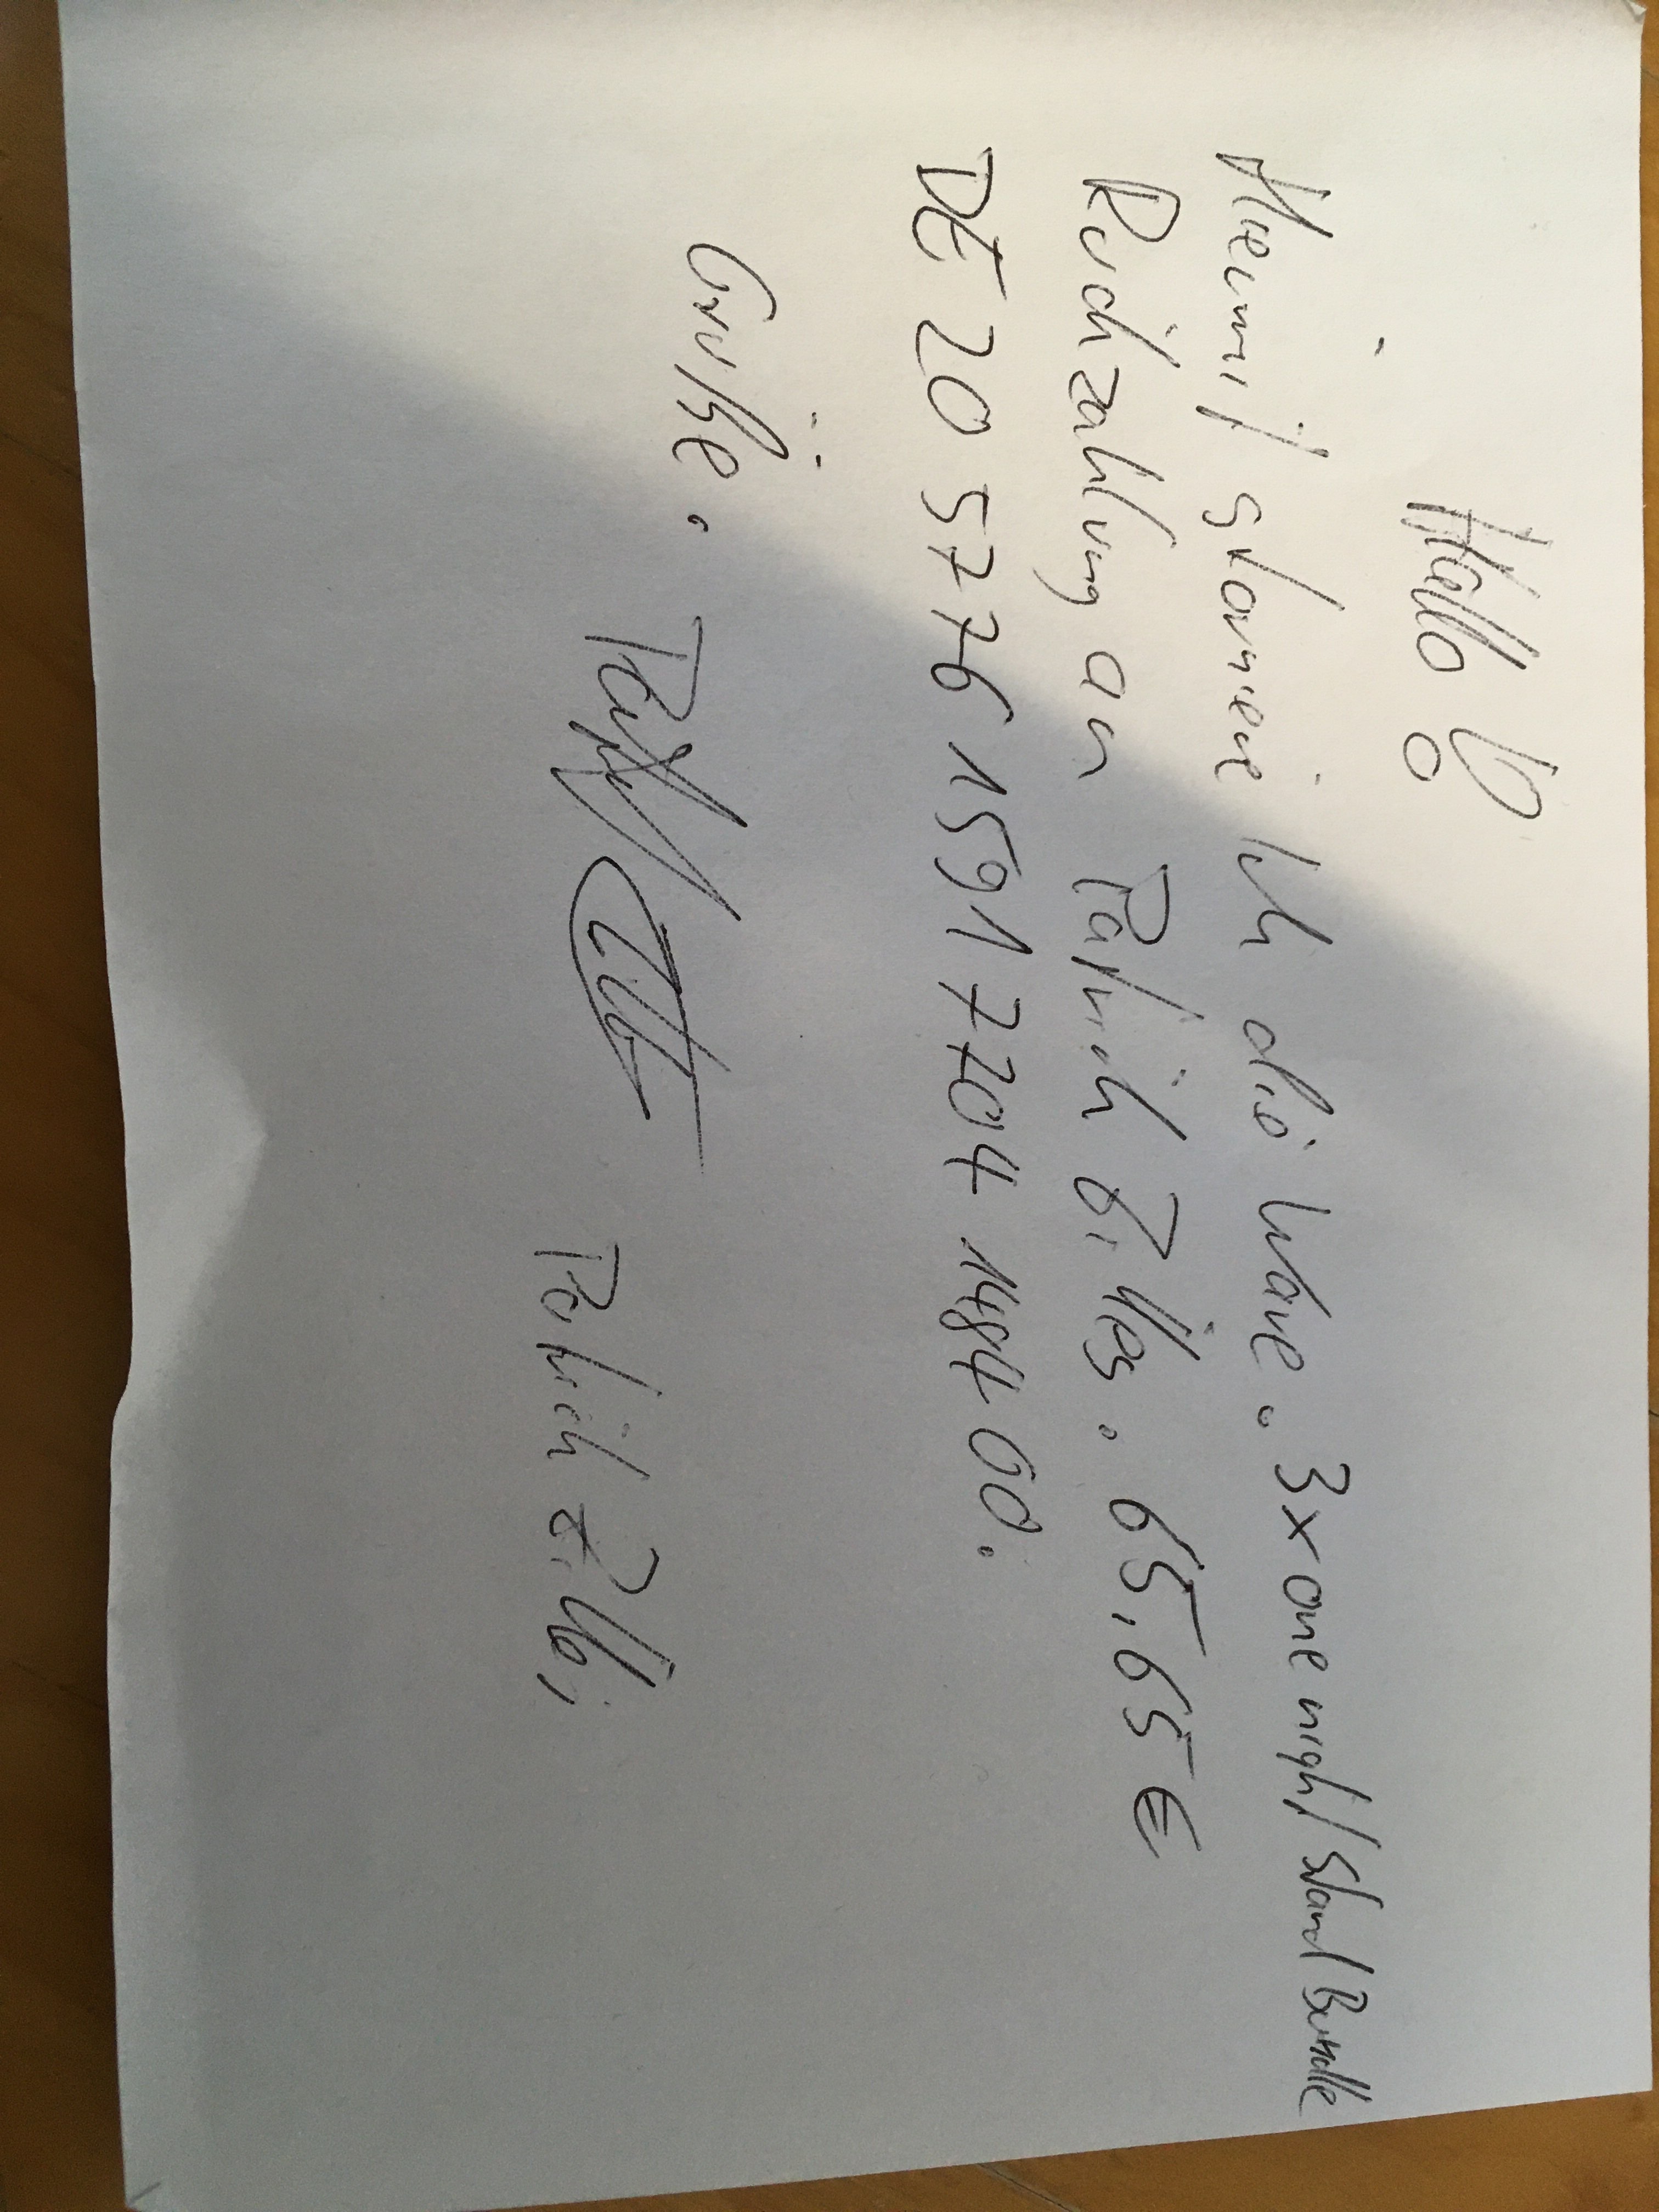 Hallo !
Hiermit storniere ich die Ware. 3x one night Stand Bundle
Rückzahlung an Patrick Zilles. 65,65 €
DE 20 5776 1591 7704 1484 00.
Grüße. Patrick